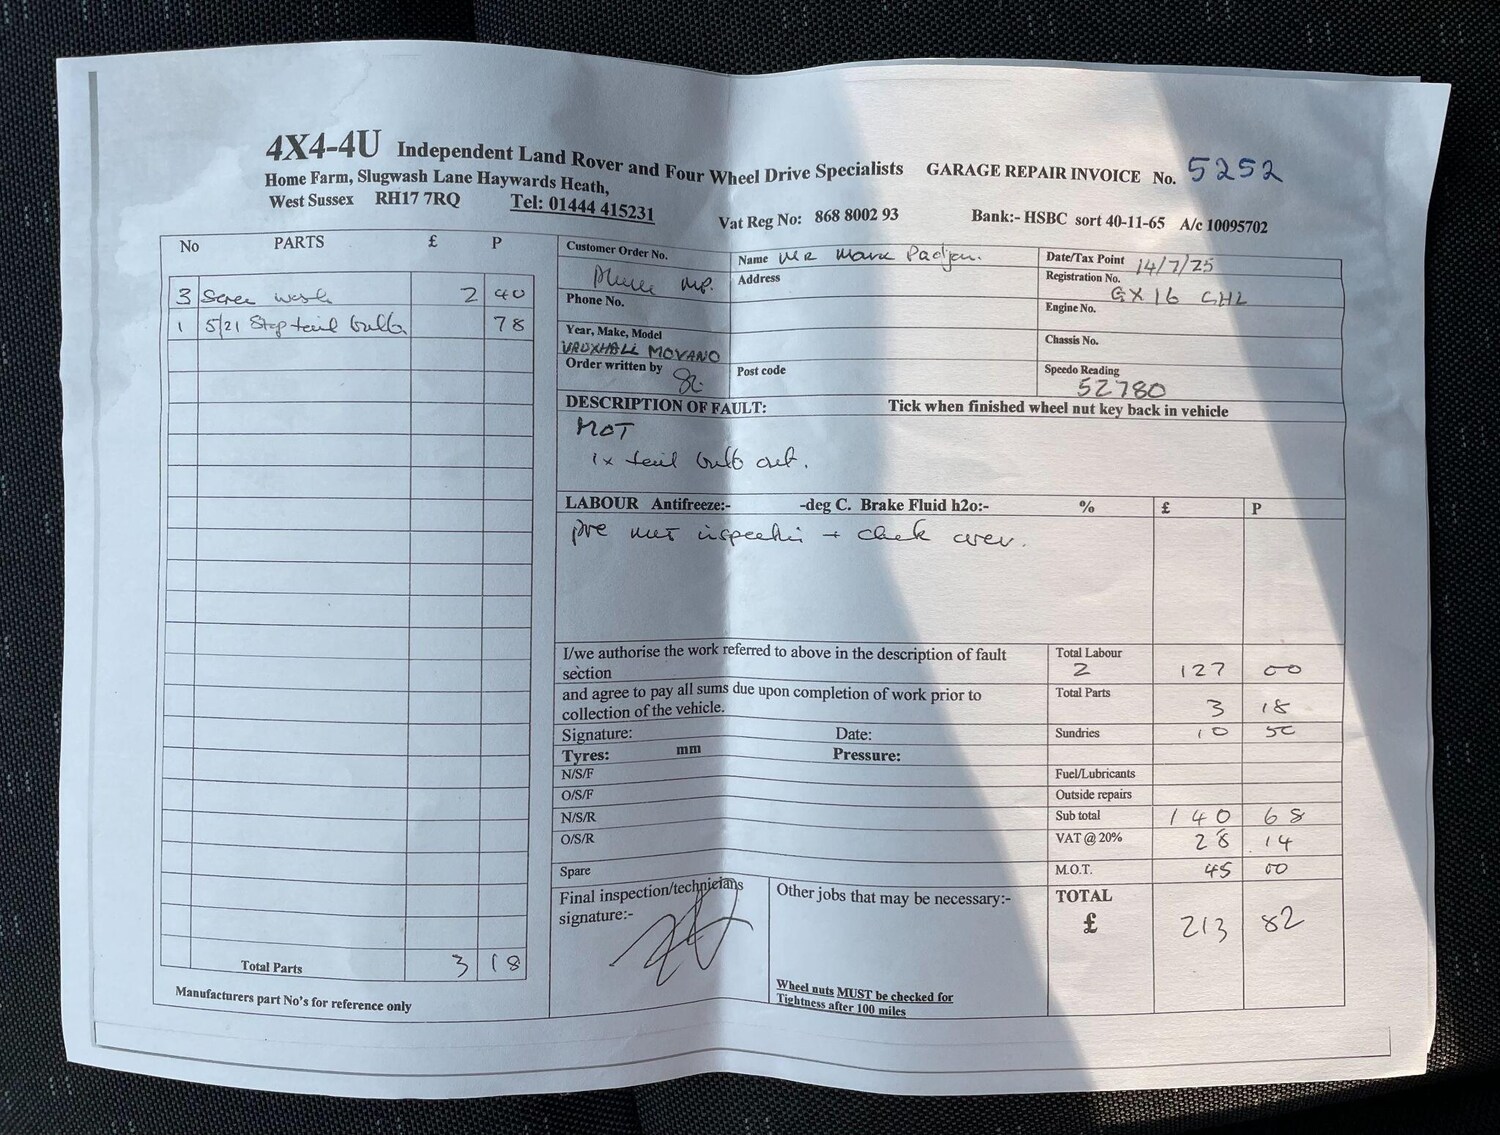 4X4-4U Independent Land Rover and Four Wheel Drive Specialists GARAGE REPAIR INVOICE No. 5252
Home Farm, Slugwash Lane Haywards Heath,
West Sussex RH17 7RQ Tel: 01444 415231
Vat Reg No: 868 8002 93 Bank:- HSBC sort 40-11-65 A/c 10095702
No PARTS £ P
3 Screen wash 2 40
1 5/21 Stop tail bulb 78
Total Parts 3 18
Manufacturers part No's for reference only
Customer Order No.
Phone No.
Year, Make, Model
VAUXHALL MOVANO
Order written by
Name Mr Mark
Address
Post code
Date/Tax Point 14/7/25
Registration No.
GX16 CHL
Engine No.
Chassis No.
Speedo Reading
52780
DESCRIPTION OF FAULT: Tick when finished wheel nut key back in vehicle
MOT
1x tail bulb out.
LABOUR Antifreeze:- -deg C. Brake Fluid h2o:- % £ P
pre mot inspection + check over.
I/we authorise the work referred to above in the description of fault
section
and agree to pay all sums due upon completion of work prior to
collection of the vehicle.
Signature: Date:
Tyres: mm Pressure:
N/S/F
O/S/F
N/S/R
O/S/R
Spare
Total Labour
2 127 00
Total Parts
3 18
Sundries 10 50
Fuel/Lubricants
Outside repairs
Sub total 140 68
VAT @ 20% 28 14
M.O.T. 45 00
TOTAL
£ 213 82
Final inspection/technicians
signature:-
Other jobs that may be necessary:-
Wheel nuts MUST be checked for
Tightness after 100 miles